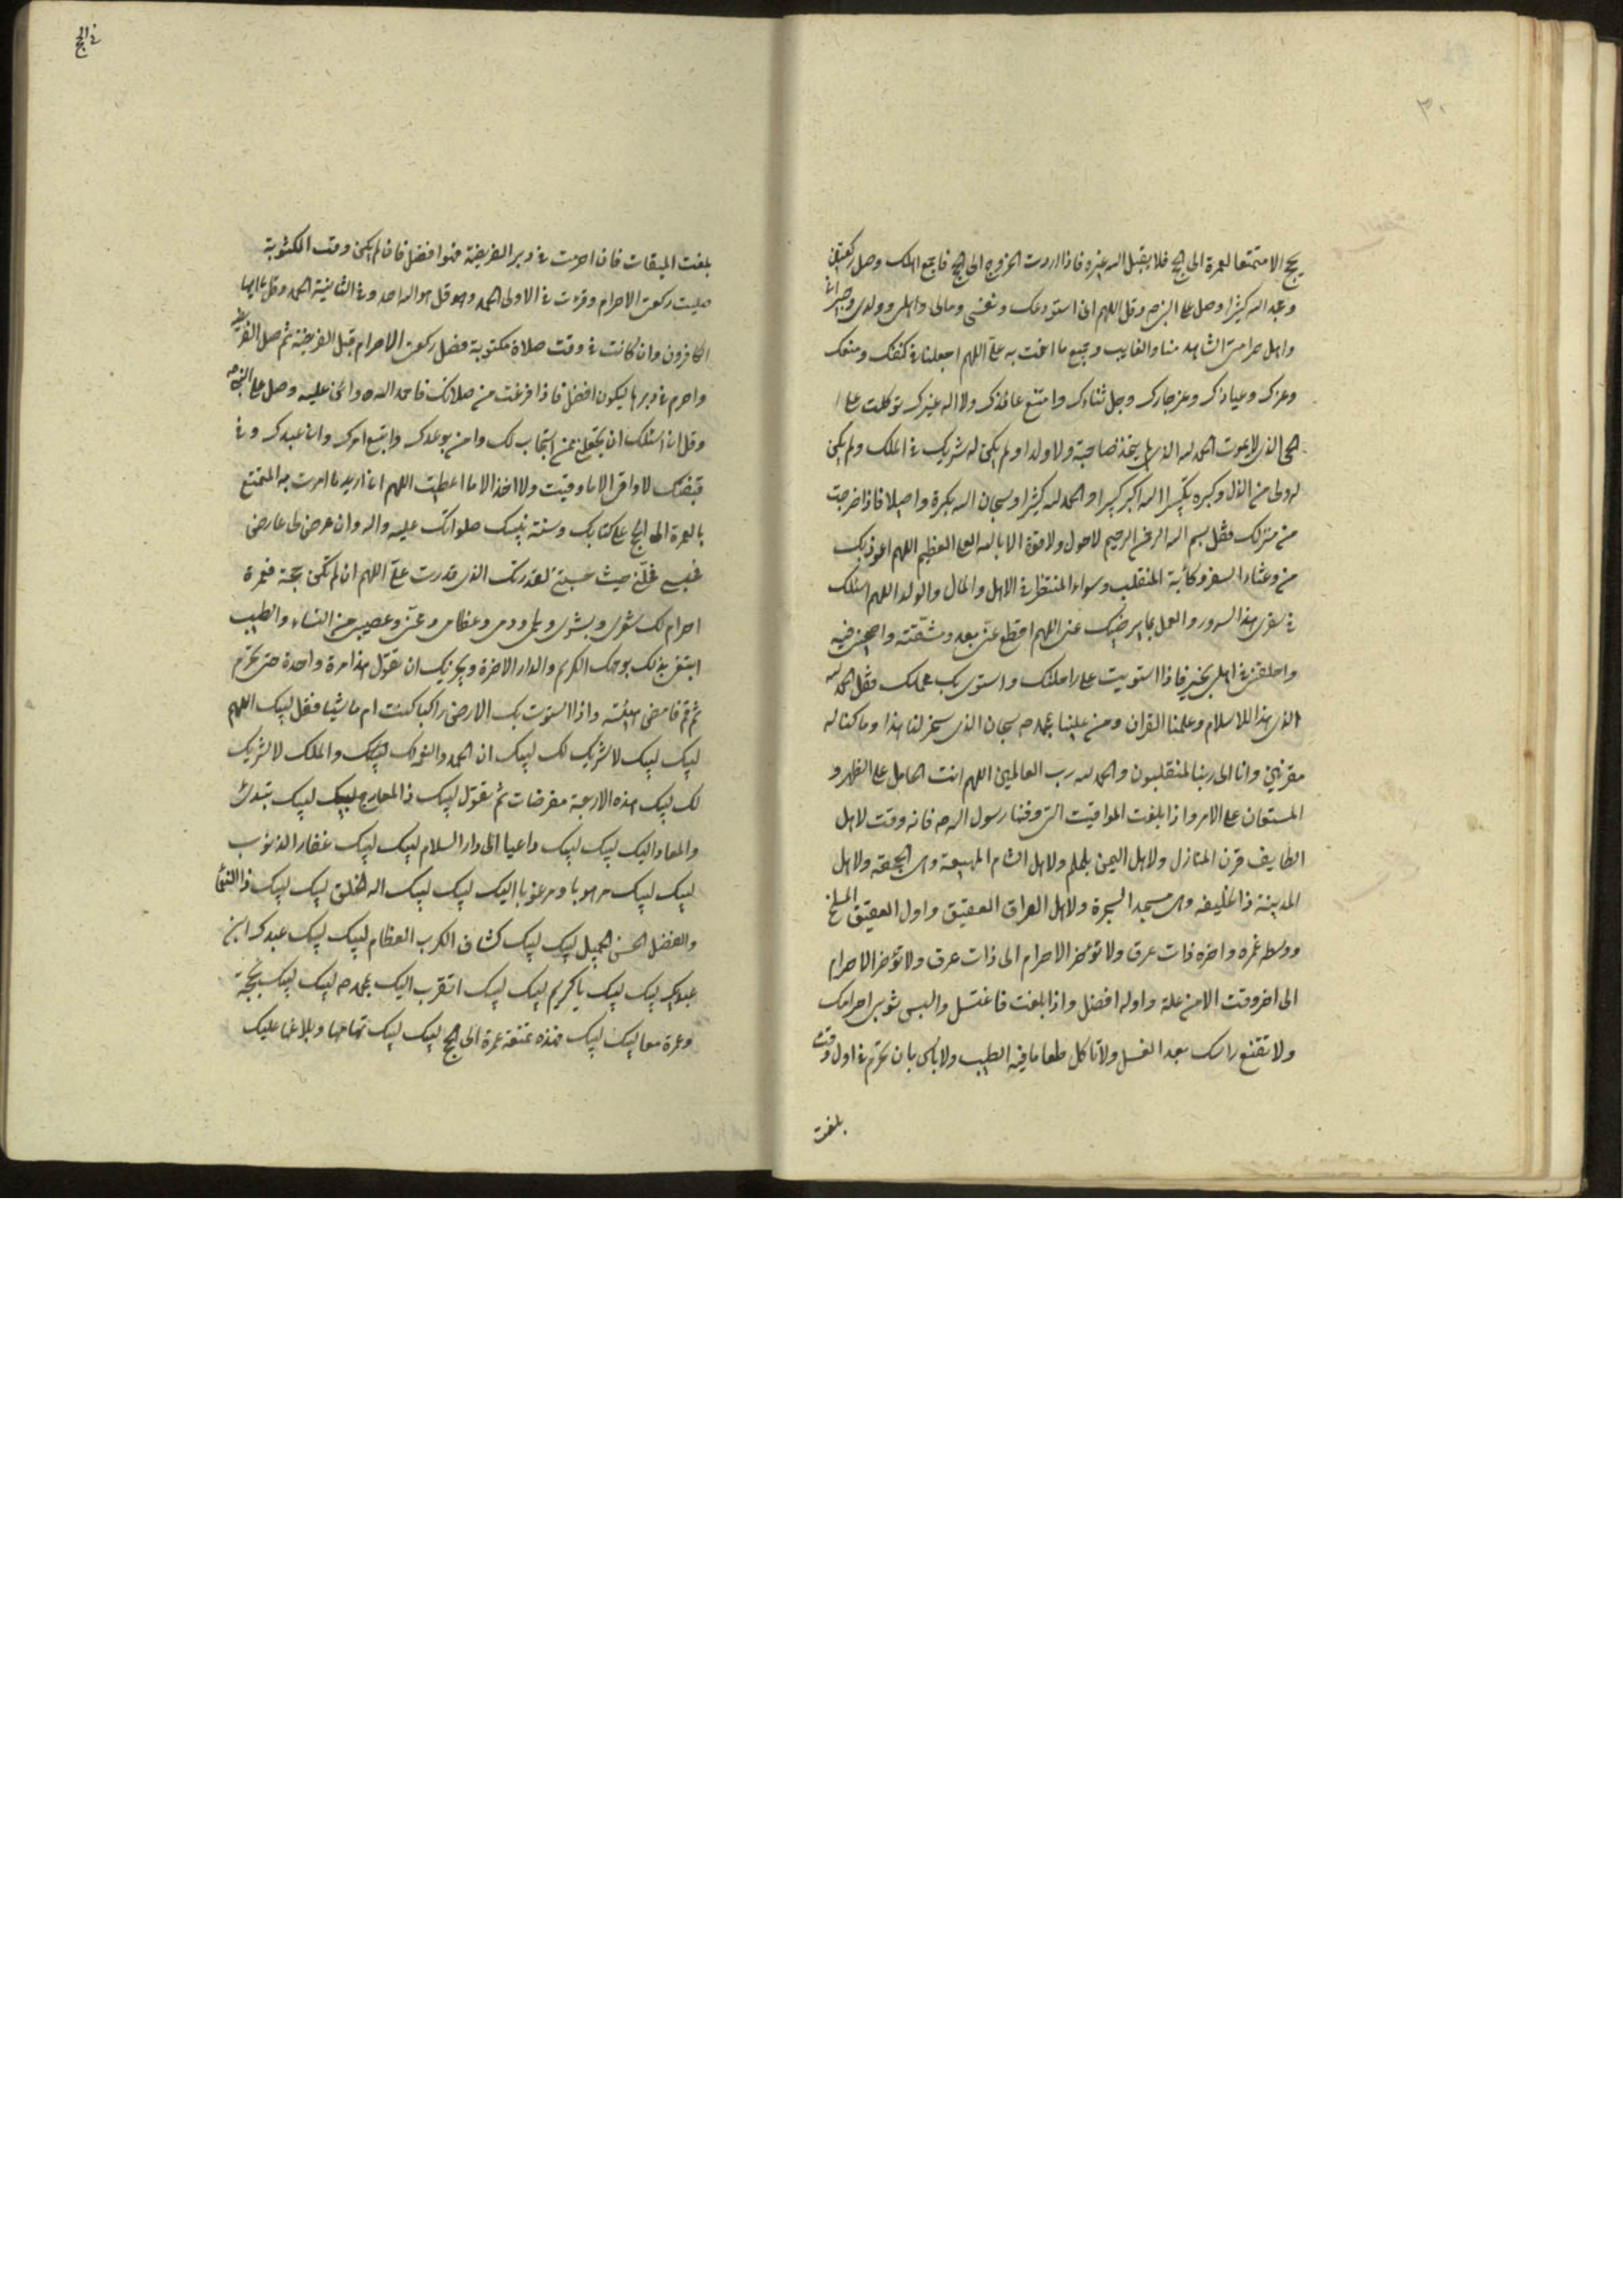 ٣٠
يحج الا متمتعا بالعمرة الى الحج فلا يقبل الله غيره فاذا اردت الخروج الى الحج فاجمع اهلك وصل ركعتين
ومجد الله كثيرا وصل على النبي ص وقل اللهم انى استودعك ونفسى ومالى واهلى وولدى وجيرانى
واهل حزانتى الشاهد منا والغايب وجميع ما انعمت به على اللهم اجعلنا فى كنفك ومنعك
وعزك وعياذك وعز جارك وجل ثناءك وامتنع عائذك ولا اله غيرك توكلت على
الحى الذى لا يموت الحمد لله الذى لم يتخذ صاحبة ولا ولدا ولم يكن له شريك فى الملك ولم يكن
له ولى من الذل وكبره تكبيرا الله اكبر كبيرا والحمد لله كثيرا وسبحان الله بكرة واصيلا فاذا خرجت
من منزلك فقل بسم الله الرحمن الرحيم لا حول ولا قوة الا بالله العلى العظيم اللهم اعوذ بك
من وعثاء السفر وكآبة المنقلب وسواء المنتظر فى الاهل والمال والولد اللهم اسئلك
فى سفرى هذا السرور والعمل بما يرضيك عنى اللهم اقطع عنى بعده ومشقته واصحبنى فيه
واخلفنى فى اهلى بخير فاذا استويت على راحلتك واستوى بك محملك فقل الحمد لله
الذى هدانا للاسلام وعلمنا القران ومن علينا بمحمد ص سبحان الذى سخر لنا هذا وما كنا له
مقرنين وانا الى ربنا لمنقلبون والحمد لله رب العالمين اللهم انت الحامل على الظهر و
المستعان على الامر واذا بلغت المواقيت التى وقتها رسول الله ص فانه وقت لاهل
الطايف قرن المنازل ولاهل اليمن يلملم ولاهل الشام المهيعة وهى الجحفة ولاهل
المدينة ذا الحليفه وهى مسجد الشجرة ولاهل العراق العقيق واول العقيق المسلخ
ووسطه غمره واخره ذات عرق ولا تؤخر الاحرام الى ذات عرق ولا تؤخر الاحرام
الى اخر وقت الا من علة واوله افضل واذا بلغت فاغتسل والبس ثوبى احرامك
ولا تقنع راسك بعد الغسل ولا تاكل طعاما فيه الطيب ولا باس بان تحرم فى اول وقت
بلغت
فى الحج
بلغت الميقات فان احرمت فى دبر الفريضة فهو افضل فان لم يكن وقت المكتوبة
صليت ركعتى الاحرام وقرئت فى الاولى الحمد وقل هو الله احد وفى الثانية الحمد وقل يا ايها
الكافرون وان كانت فى وقت صلاة مكتوبة فصل ركعتى الاحرام قبل الفريضة ثم صل الفريضة
واحرم فى دبرها ليكون افضل فاذا فرغت من صلاتك فاحمد الله واثن عليه وصل على النبى ص
وقل انى اسئلك ان تجعلنى ممن استجاب لك وامن بوعدك واتبع امرك وانى عبدك وفى
قبضتك لا واقى الا ما وقيت ولا اخذ الا ما اعطيت اللهم انى اريد ما امرت به المتمتع
بالعمرة الى الحج على كتابك وسنة نبيك صلواتك عليه واله وان عرض لى عارض
يحبسنى فحلنى حيث حبستنى لقدرتك الذى قدرت على اللهم ان لم تكن حجة فعمرة
احرام لك شعرى وبشرى ولحمى ودمى وعظامى ومخى وعصبى من النساء والطيب
ابتغى بذلك بوجهك الكريم والدار الاخرة ويجزيك ان تقول هذا مرة واحدة حتى تحرم
ثم قم فامض هيئته واذا استوت بك الارض راكبا كنت ام ماشيا فقل لبيك اللهم
لبيك لبيك لا شريك لك لبيك ان الحمد والنعمة لك لبيك والملك لا شريك
لك لبيك هذه الاربعة مفرضات ثم تقول لبيك ذا المعارج لبيك لبيك تبدئ
والمعاد اليك لبيك لبيك داعيا الى دار السلام لبيك لبيك غفار الذنوب
لبيك لبيك مرهوبا ومرغوبا اليك لبيك لبيك اله الخلق لبيك لبيك ذا النعماء
والفضل الحسن الجميل لبيك لبيك كشاف الكرب العظام لبيك لبيك عبدك ابن
عبديك لبيك لبيك يا كريم لبيك لبيك اتقرب اليك بمحمد ص لبيك لبيك بحجة
وعمرة معا لبيك لبيك هذه متعة عمرة الى الحج لبيك لبيك تمامها وبلاغها عليك